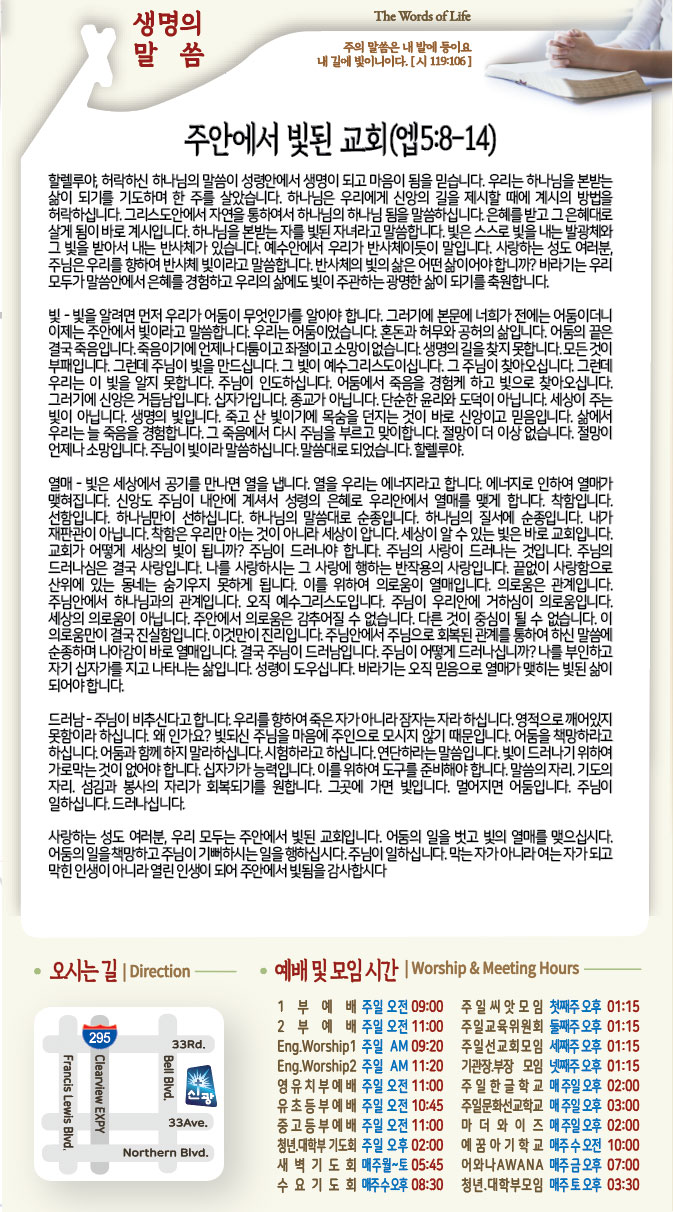 생명의
말 씀
The Words of Life
주의 말씀은 내 발에 등이요
내 길에 빛이니이다. [ 시 119:106 ]
주안에서 빛된 교회(엡5:8-14)
할렐루야, 허락하신 하나님의 말씀이 성령안에서 생명이 되고 마음이 됨을 믿습니다. 우리는 하나님을 본받는
삶이 되기를 기도하며 한 주를 살았습니다. 하나님은 우리에게 신앙의 길을 제시할 때에 계시의 방법을
허락하십니다. 그리스도안에서 자연을 통하여서 하나님의 하나님 됨을 말씀하십니다. 은혜를 받고 그 은혜대로
살게 됨이 바로 계시입니다. 하나님을 본받는 자를 빛된 자녀라고 말씀합니다. 빛은 스스로 빛을 내는 발광체와
그 빛을 받아서 내는 반사체가 있습니다. 예수안에서 우리가 반사체이듯이 말입니다. 사랑하는 성도 여러분,
주님은 우리를 향하여 반사체 빛이라고 말씀합니다. 반사체의 빛의 삶은 어떤 삶이어야 합니까? 바라기는 우리
모두가 말씀안에서 은혜를 경험하고 우리의 삶에도 빛이 주관하는 광명한 삶이 되기를 축원합니다.
빛 - 빛을 알려면 먼저 우리가 어둠이 무엇인가를 알아야 합니다. 그러기에 본문에 너희가 전에는 어둠이더니
이제는 주안에서 빛이라고 말씀합니다. 우리는 어둠이었습니다. 혼돈과 허무와 공허의 삶입니다. 어둠의 끝은
결국 죽음입니다. 죽음이기에 언제나 다툼이고 좌절이고 소망이 없습니다. 생명의 길을 찾지 못합니다. 모든 것이
부패입니다. 그런데 주님이 빛을 만드십니다. 그 빛이 예수그리스도이십니다. 그 주님이 찾아오십니다. 그런데
우리는 이 빛을 알지 못합니다. 주님이 인도하십니다. 어둠에서 죽음을 경험케 하고 빛으로 찾아오십니다.
그러기에 신앙은 거듭남입니다. 십자가입니다. 종교가 아닙니다. 단순한 윤리와 도덕이 아닙니다. 세상이 주는
빛이 아닙니다. 생명의 빛입니다. 죽고 산 빛이기에 목숨을 던지는 것이 바로 신앙이고 믿음입니다. 삶에서
우리는 늘 죽음을 경험합니다. 그 죽음에서 다시 주님을 부르고 맞이합니다. 절망이 더 이상 없습니다. 절망이
언제나 소망입니다. 주님이 빛이라 말씀하십니다. 말씀대로 되었습니다. 할렐루야.
열매 - 빛은 세상에서 공기를 만나면 열을 냅니다. 열을 우리는 에너지라고 합니다. 에너지로 인하여 열매가
맺혀집니다. 신앙도 주님이 내안에 계셔서 성령의 은혜로 우리안에서 열매를 맺게 합니다. 착함입니다.
선함입니다. 하나님만이 선하십니다. 하나님의 말씀대로 순종입니다. 하나님의 질서에 순종입니다. 내가
재판관이 아닙니다. 착함은 우리만 아는 것이 아니라 세상이 압니다. 세상이 알 수 있는 빛은 바로 교회입니다.
교회가 어떻게 세상의 빛이 됩니까? 주님이 드러나야 합니다. 주님의 사랑이 드러나는 것입니다. 주님의
드러나심은 결국 사랑입니다. 나를 사랑하시는 그 사랑에 행하는 반작용의 사랑입니다. 끝없이 사랑함으로
산위에 있는 동네는 숨기우지 못하게 됩니다. 이를 위하여 의로움이 열매입니다. 의로움은 관계입니다.
주님안에서 하나님과의 관계입니다. 오직 예수그리스도입니다. 주님이 우리안에 거하심이 의로움입니다.
세상의 의로움이 아닙니다. 주안에서 의로움은 감추어질 수 없습니다. 다른 것이 중심이 될 수 없습니다. 이
의로움만이 결국 진실함입니다. 이것만이 진리입니다. 주님안에서 주님으로 회복된 관계를 통하여 하신 말씀에
순종하며 나아감이 바로 열매입니다. 결국 주님이 드러남입니다. 주님이 어떻게 드러나십니까? 나를 부인하고
자기 십자가를 지고 나타나는 삶입니다. 성령이 도우십니다. 바라기는 오직 믿음으로 열매가 맺히는 빛된 삶이
되어야 합니다.
드러남 - 주님이 비추신다고 합니다. 우리를 향하여 죽은 자가 아니라 잠자는 자라 하십니다. 영적으로 깨어있지
못함이라 하십니다. 왜 인가요? 빛되신 주님을 마음에 주인으로 모시지 않기 때문입니다. 어둠을 책망하라고
하십니다. 어둠과 함께 하지 말라하십니다. 시험하라고 하십니다. 연단하라는 말씀입니다. 빛이 드러나기 위하여
가로막는 것이 없어야 합니다. 십자가가 능력입니다. 이를 위하여 도구를 준비해야 합니다. 말씀의 자리. 기도의
자리. 섬김과 봉사의 자리가 회복되기를 원합니다. 그곳에 가면 빛입니다. 멀어지면 어둠입니다. 주님이
일하십니다. 드러나십니다.
사랑하는 성도 여러분, 우리 모두는 주안에서 빛된 교회입니다. 어둠의 일을 벗고 빛의 열매를 맺으십시다.
어둠의 일을 책망하고 주님이 기뻐하시는 일을 행하십시다. 주님이 일하십니다. 막는 자가 아니라 여는 자가 되고
막힌 인생이 아니라 열린 인생이 되어 주안에서 빛됨을 감사합시다
오시는 길 | Direction
295
33Rd.
Francis Lewis Blvd.
Clearview EXPY
Bell Blvd.
신광
33Ave.
Northern Blvd.
예배 및 모임 시간 | Worship & Meeting Hours
1 부 예 배 주일 오전 09:00
2 부 예 배 주일 오전 11:00
Eng.Worship1 주일 AM 09:20
Eng.Worship2 주일 AM 11:20
영유치부예배 주일 오전 11:00
유초등부예배 주일 오전 10:45
중고등부예배 주일 오전 11:00
청년.대학부 기도회 주일 오후 02:00
새 벽 기 도 회 매주월~토 05:45
수 요 기 도 회 매주수오후 08:30
주일씨앗모임 첫째주 오후 01:15
주일교육위원회 둘째주 오후 01:15
주일선교회모임 세째주 오후 01:15
기관장.부장 모임 넷째주 오후 01:15
주일한글학교 매주일 오후 02:00
주일문화선교학교 매주일 오후 03:00
마더와이즈 매주일 오후 02:00
예꿈아기학교 매주 수 오전 10:00
어와나AWANA 매주 금 오후 07:00
청년.대학부모임 매주 토 오후 03:30